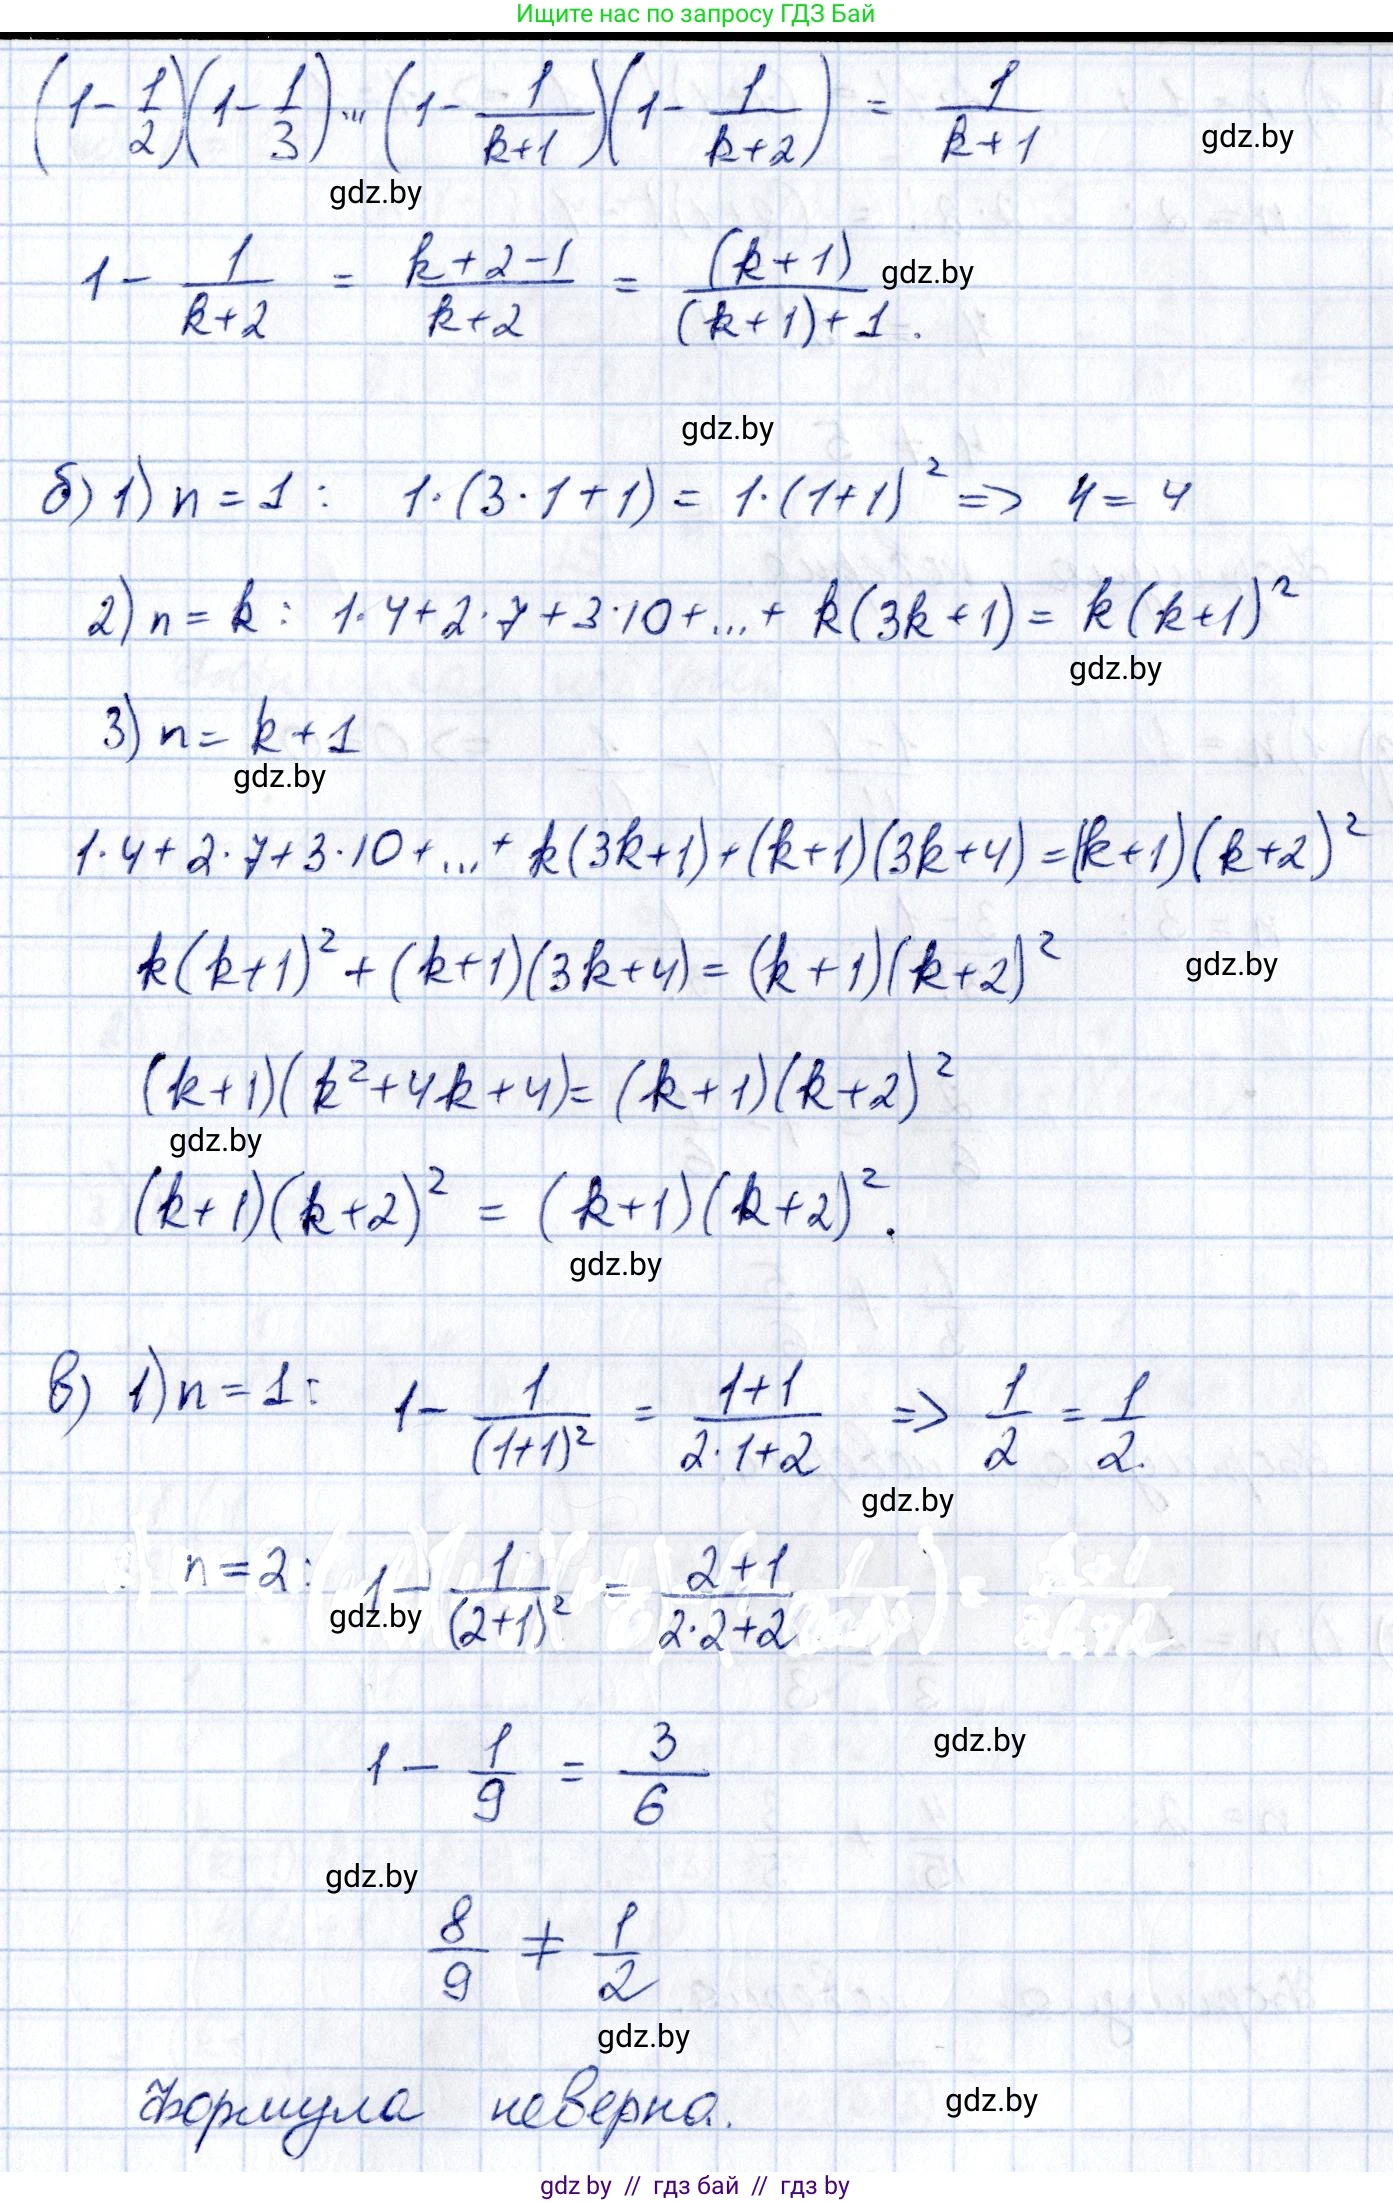 Ищите нас по запросу ГДЗ Бай
(1 - 1/2)(1 - 1/3)...(1 - 1/(k+1))(1 - 1/(k+2)) = 1/(k+1)
gdz.by
gdz.by
1 - 1/(k+2) = (k+2-1)/(k+2) = (k+1)/((k+1)+1).
gdz.by
gdz.by
б) 1) n = 1 : 1·(3·1+1) = 1·(1+1)² => 4 = 4
2) n = k : 1·4+2·7+3·10+...+ k(3k+1) = k(k+1)²
gdz.by
3) n = k+1
gdz.by
1·4+2·7+3·10+...+ k(3k+1)+(k+1)(3k+4) = (k+1)(k+2)²
k(k+1)²+(k+1)(3k+4) = (k+1)(k+2)²
gdz.by
(k+1)(k²+4k+4) = (k+1)(k+2)²
gdz.by
(k+1)(k+2)² = (k+1)(k+2)².
gdz.by
в) 1) n = 1: 1 - 1/(1+1)² = (1+1)/(2·1+2) => 1/2 = 1/2.
gdz.by
n = 2: 1 - 1/(2+1)² = (2+1)/(2·2+2)
gdz.by
1 - 1/9 = 3/6
gdz.by
gdz.by
8/9 ≠ 1/2
gdz.by
Формула неверна.
gdz.by
gdz by // гдз бай // гдз by